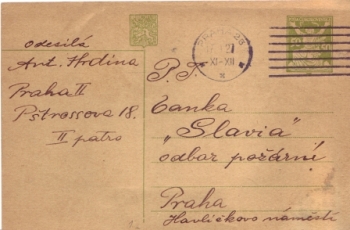 odesílá
Ant. Hrdina
Praha II
Pštrossova 18.
II patro
P. T.
banka
„Slavia"
odbor požární
Praha
Havlíčkovo náměstí
XI-XII